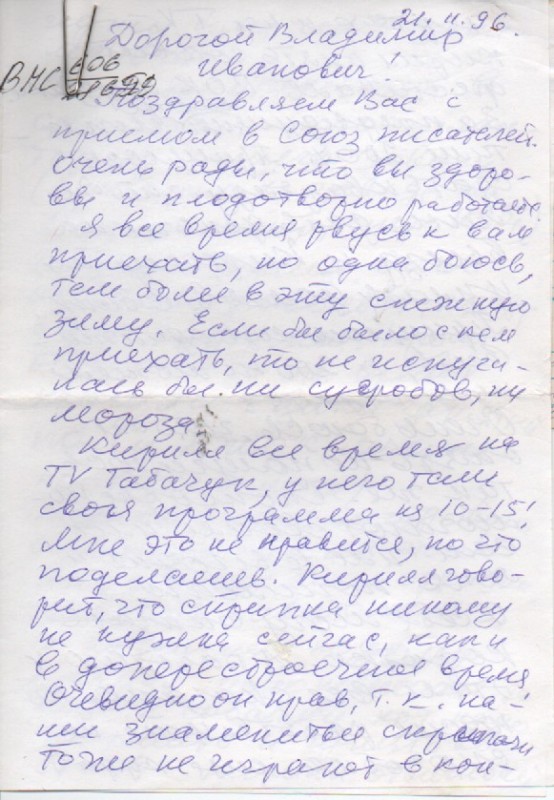 21.11.96.
Дорогой Владимир
Иванович!
ВМС 606
Поздравляем Вас с
приемом в Союз писателей.
Очень рады, что вы здоро-
вы и плодотворно работаете.
Я все время рвусь к вам
приехать, но одна боюсь,
тем более в эту снежную
зиму. Если бы было с кем
приехать, то не испуга-
лась бы ни сугробов, ни
мороза.
Кирилл все время на
TV Табачук, у него там
своя программа на 10-15!
Мне это не нравится, но что
поделаешь. Кирилл гово-
рит, что скрипка никому
не нужна сейчас, как и
в доперестроечное время!
Очевидно он прав, т.к. на-
ши знаменитые скрипачи
тоже не играют в кон-